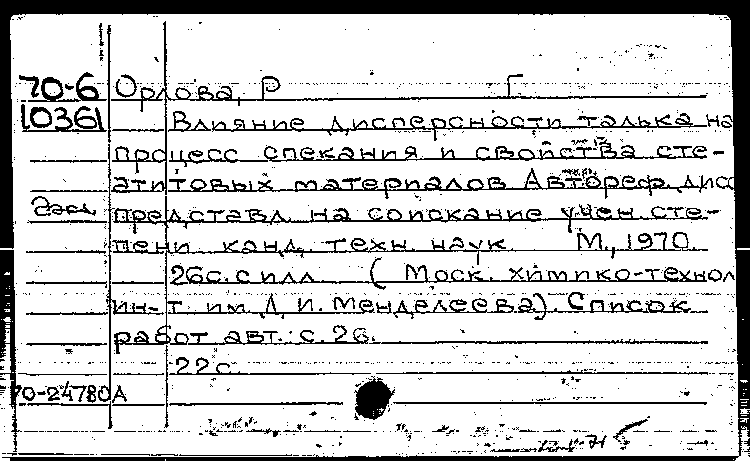 70-6 Орлова, Р Г
10361 Влияние дисперсности талька на
процесс спекания и свойства сте-
атитовых материалов Автореф. дисс
представл. на соискание учен. сте-
пени канд. техн. наук М., 1970.
26с. с илл (Моск. химико-технол
ин-т. им Д. И. Менделеева). Список
работ авт.: с. 26.
22с.
70-24780А